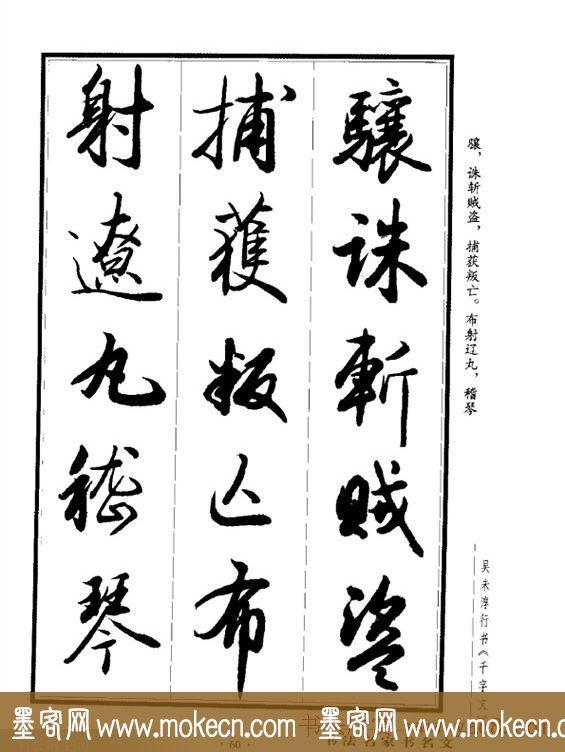 骧，诛斩贼盗，捕获叛亡。布射辽丸，稽琴
吴未淳行书《千字文
驤誅斬賊盜
捕獲叛亡布
射遼丸嵇琴
墨客网www.mokecn.com 墨客网www.mokecn.com
· 60 ·